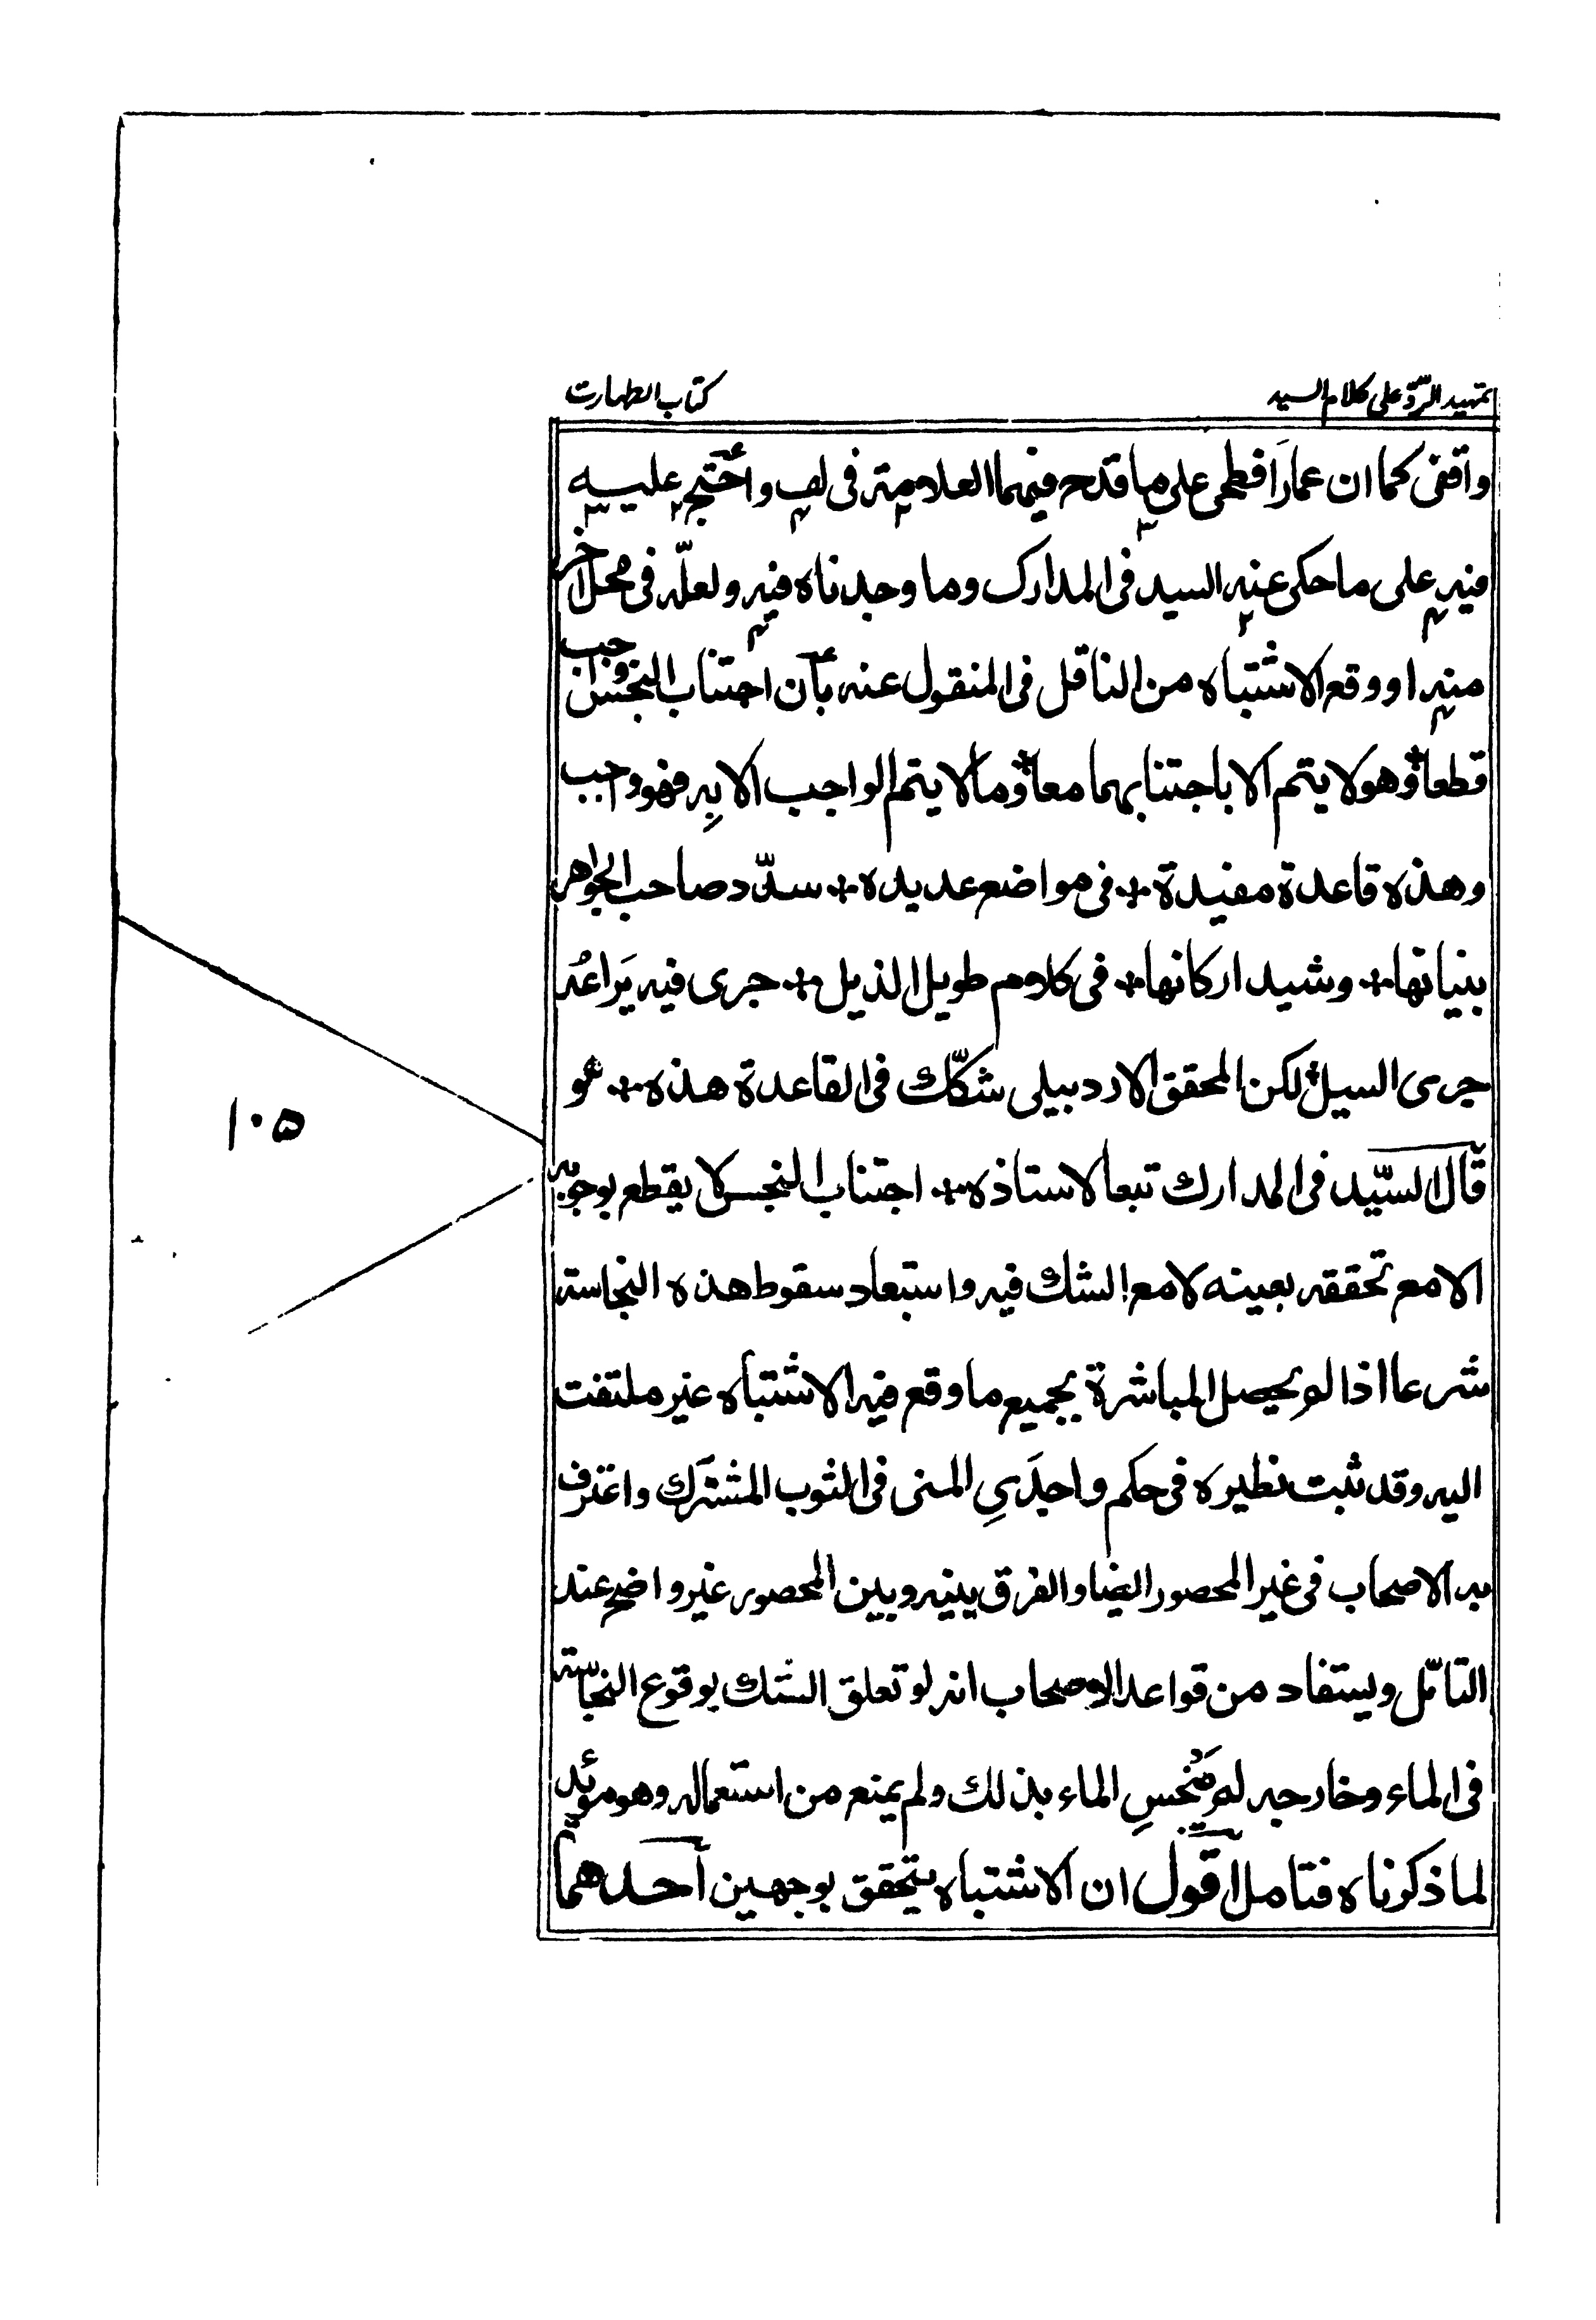 تمهيد الردّ على كلام السيد
كتاب الطهارت
واقفى كما ان عمارَا فطحى على ما قدح فيهما العلامة فى لف واحتج عليه
فيه على ما حكى عنه السيد فى المدارك وما وجدناه فيه ولعلّه فى محل اخر
منه او وقع الاشتباه من الناقل فى المنقول عنه بأن اجتناب النجس واجب
قطعا وهو لا يتم الا باجتنابهما معا وما لا يتم الواجب الا به فهو واجب
وهذه قاعدة مفيدة * فى مواضع عديده * سدّد صاحب الجواهر
بنيانها * وشيد اركانها * فى كلام طويل الذيل * جرى فيه يَراعُه
جرى السيل * لكن المحقق الاردبيلى شكّك فى القاعدة هذه * و
قال السيّد فى المدارك تبعا لاستاذه * اجتناب النجس لا يقطع بوجوبه
الا مع تحققه بعينه لا مع الشك فيه واستبعاد سقوط هذه النجاسة
شرعا اذا لم يحصل المباشرة بجميع ما وقع فيه الاشتباه غير ملتفت
اليه وقد ثبت نظيره فى حكم واجدَىِ المنى فى الثوب المشترَك واعترف
به الاصحاب فى غير المحصور ايضا والفرق بينه وبين المحصور غير واضح عند
التامّل ويستفاد من قواعد الاصحاب انه لو تعلق الشك بوقوع النجاسة
فى الماء وخارجه لم ينجس الماء بذلك ولم يمنع من استعماله وهو مؤيد
لما ذكرناه فتامل اقول ان الاشتباه يتحقق بوجهين أحدهما
١٠٥